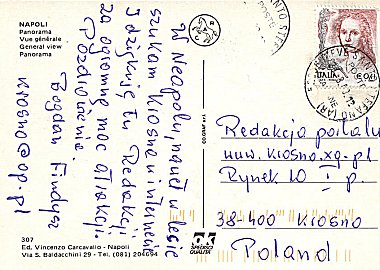 NAPOLI
Panorama
Vue générale
General view
Panorama
W Neapolu, nawet w lesie
szukam Krosna w internecie
I dziękuję tu Redakcji
za ogromną moc atrakcji.
Pozdrowienia.
Bogdan Findysz
krosno@op.pl
ITALIA
Redakcja portalu
www.krosno.xq.pl
Rynek 10 I p.
38-400 Krosno
Poland
307
Ed. Vincenzo Carcavallo - Napoli
Via S. Baldacchini 29 - Tel. (081) 204694
SPEDISCI
QUALITÀ